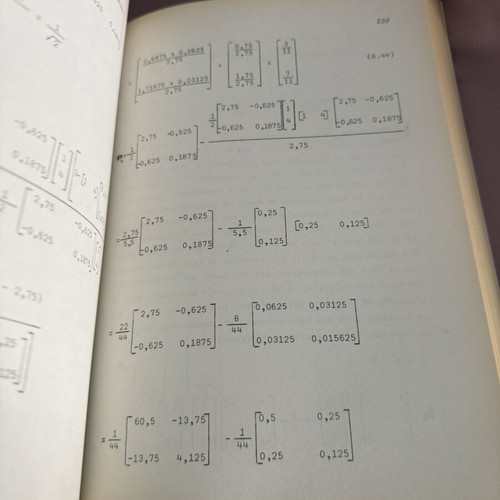 228
= [2,6875 + 0,0625 / 2,75
1,71875 + 0,03125 / 2,75] = [0,75 / 2,75
1,75 / 2,75] = [3 / 11
7 / 11] (6.44)
= 1/2 [2,75 -0,625
-0,625 0,1875] - 1/2 [2,75 -0,625
-0,625 0,1875] [1
4] [1 4] [2,75 -0,625
-0,625 0,1875] / 2,75
= 2,75/5,5 [2,75 -0,625
-0,625 0,1875] - 1/5,5 [0,25
0,125] [0,25 0,125]
= 22/44 [2,75 -0,625
-0,625 0,1875] - 8/44 [0,0625 0,03125
0,03125 0,015625]
= 1/44 [60,5 -13,75
-13,75 4,125] - 1/44 [0,5 0,25
0,25 0,125]